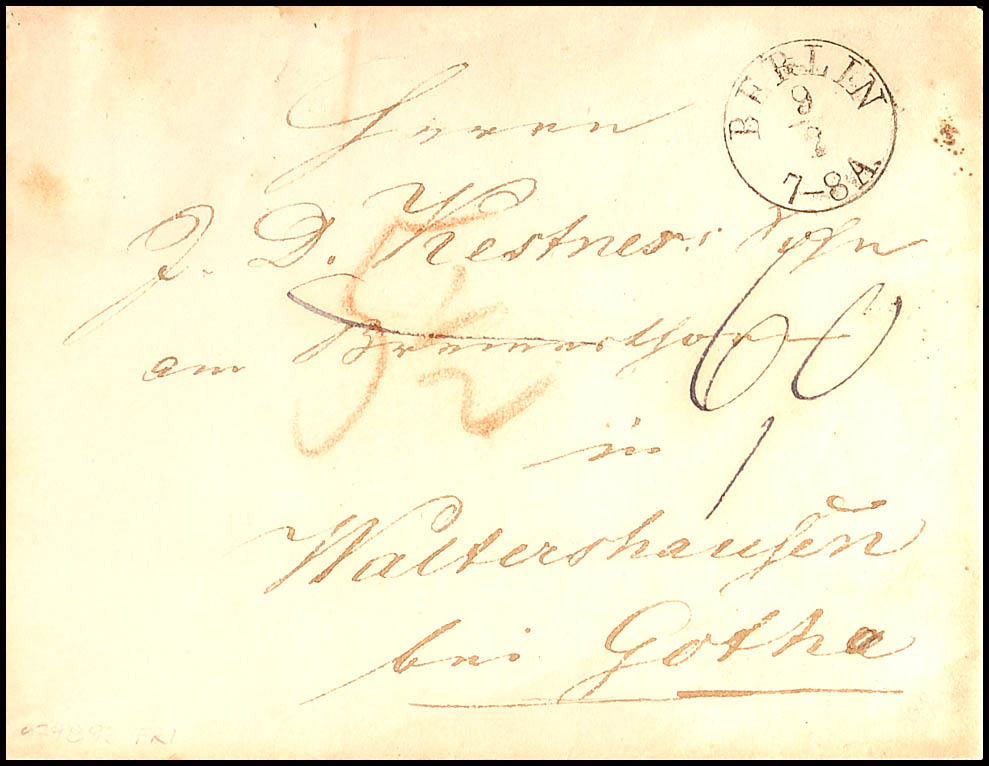 BERLIN
9/7
7-8 A.
Herrn
J. D. Kestner: Sohn
am Bremerthor
in
Waltershausen
bei Gotha